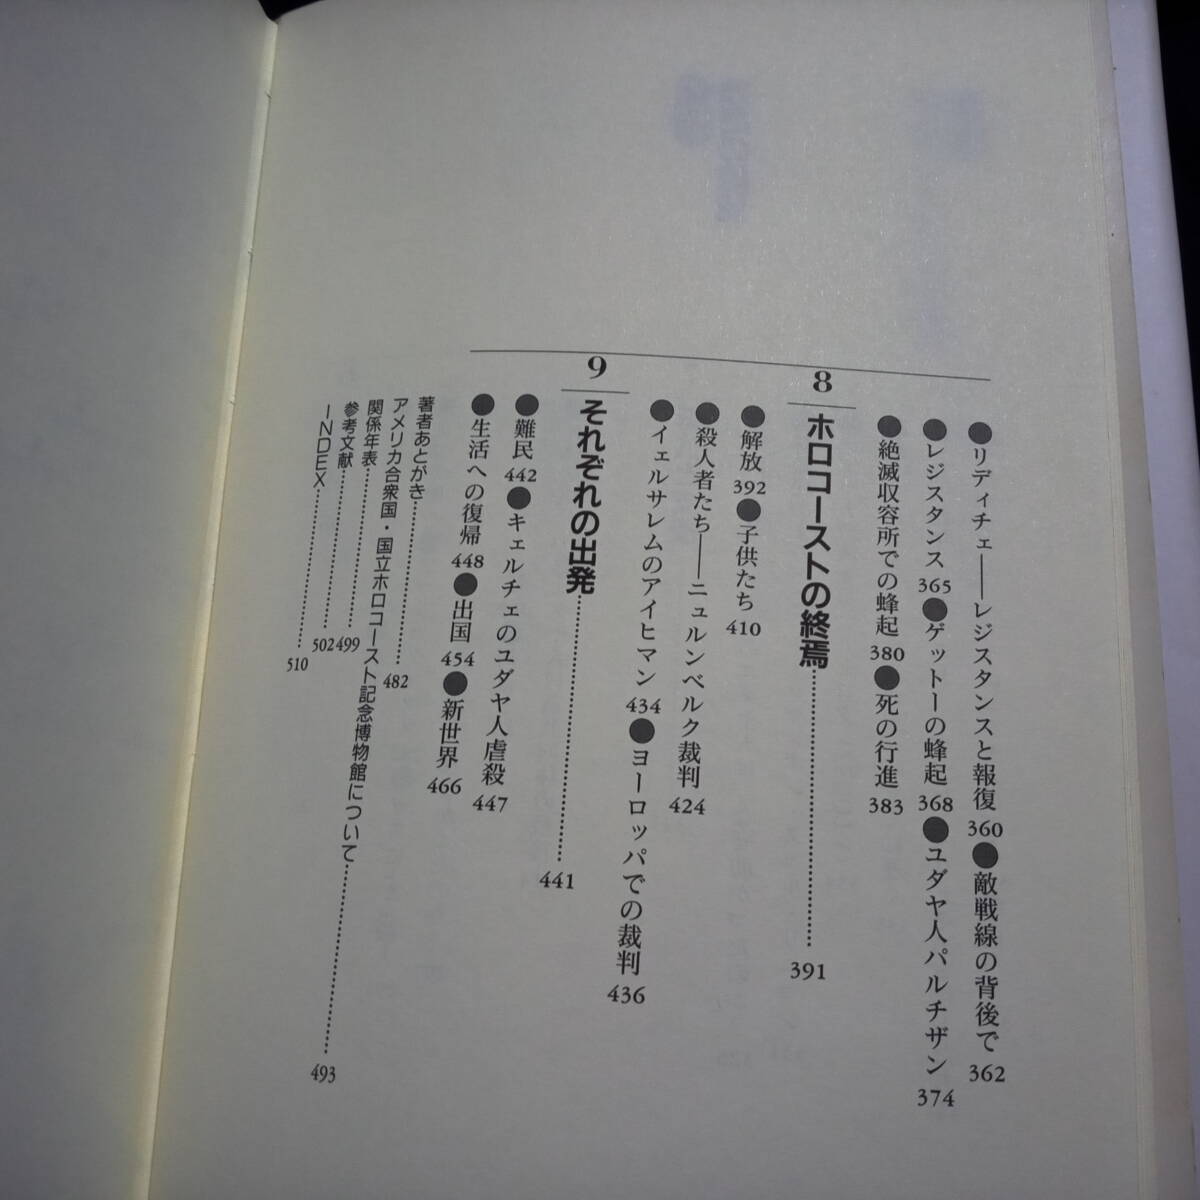 ●リディチェ――レジスタンスと報復 360 ●敵戦線の背後で 362
●レジスタンス 365 ●ゲットーの蜂起 368 ●ユダヤ人パルチザン 374
●絶滅収容所での蜂起 380 ●死の行進 383
8 ホロコーストの終焉 391
●解放 392 ●子供たち 410
●殺人者たち――ニュルンベルク裁判 424
●イェルサレムのアイヒマン 434 ●ヨーロッパでの裁判 436
9 それぞれの出発 441
●難民 442 ●キェルチェのユダヤ人虐殺 447
●生活への復帰 448 ●出国 454 ●新世界 466
著者あとがき 482
アメリカ合衆国・国立ホロコースト記念博物館について 493
関係年表 499
参考文献 502
INDEX 510